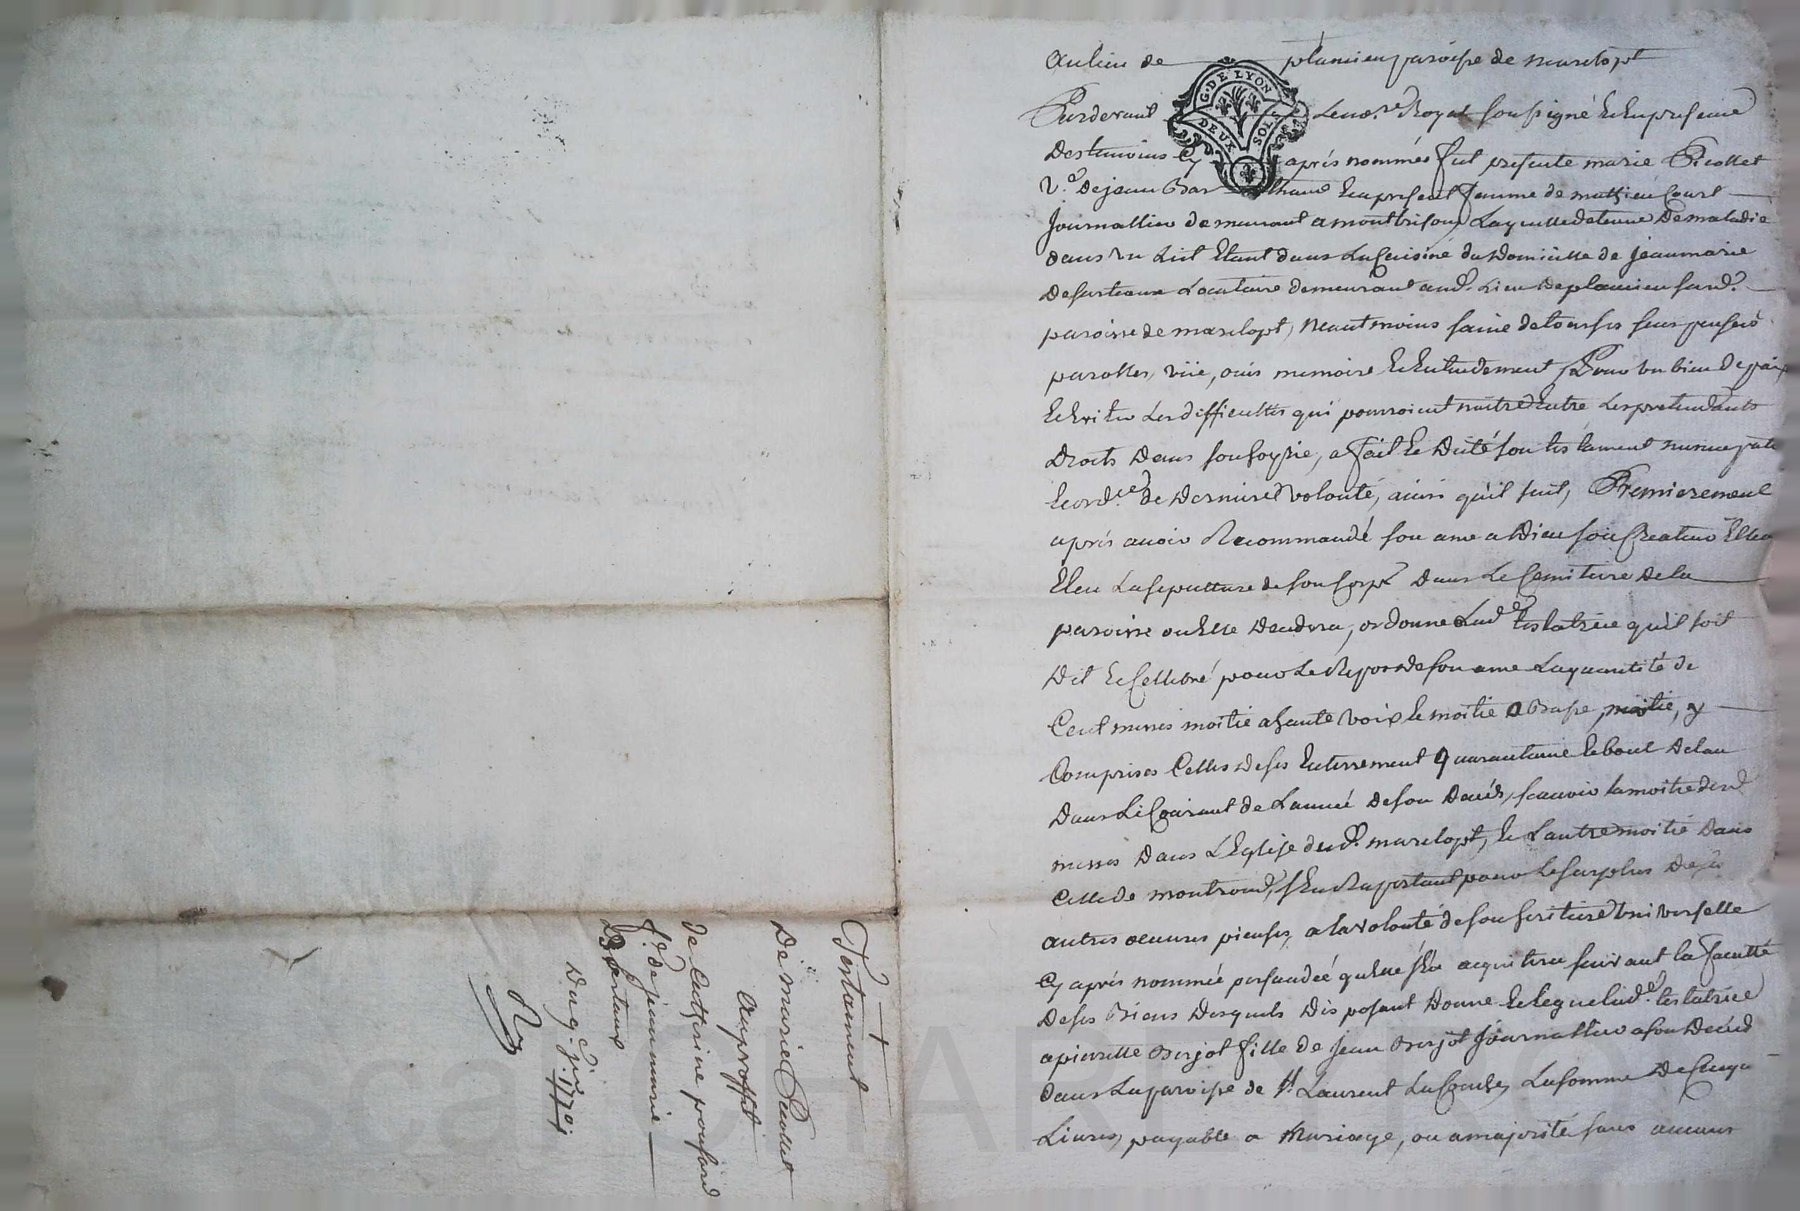 Testament
De marie Picollet
Au proffit
de Catherine poussard
f.e de jean marie
Desarteaux
Du 9.e j.er 1770.
G. DE LYON
DEUX SOLS
Au lieu de plancieu paroisse de marclopt
Pardevant Le no.re Royal soussigné Et En presence
Des temoins Cy après nommés fut presente marie Picollet
V.e De jean Bar Et a present femme de mathieu Court
journallier demeurant a montbrison, Laquelle detenue De maladie
dans un Lit Etant dans La Cuisine du Domicille de jean marie
Desarteaux Locataire demeurant aud. Lieu De plancieu sud.
paroisse de marclopt, Neantmoins saine de tous ses sens pensées
parolles, vüe, ouis memoire Et Entendement, Pour un bien De paix
Et Eviter Les difficultés qui pourroient naitre Entre Les pretendants
Droits Dans son hoyrie, a fait Et Dicté son testament nuncupatif
Et ord.ce de Derniere volonté, ainsi qu'il suit, Premierement
après avoir Recommandé son ame a Dieu son Createur Elle a
Eleu La sepulture de son Corps Dans Le Cemitiere De la
paroisse ou Elle Deceдera, ordonne Lad.e testatrice qu'il soit
Dit Et Cellebré pour Le Repos de son ame La quantité de
Cent messes moitié a haute voix Et moitié a Basse, y
Comprises Celles de ses Enterrement quarantaine Et bout De l'an
Dans Le Courant de L'année De son Decés, scavoir la moitié desd.
messes Dans L'Eglise dud. marclopt, Et L'autre moitié Dans
Celle de montrond, s'En Raportant pour Le surplus De ses
autres oeuvres pieuses, a la volonté de son heritiere universelle
Cy après nommée persuadée qu'elle s'En acquittera suivant la faculté
De ses Biens Desquels Disposant Donne Et Legue lad.e testatrice
a pierrette Berjot fille de jean Berjot journallier a son Deced
Dans La paroisse de S.t Laurent La Conche, La somme De Cinqu
Livres, payable a Mariage, ou a majorité sans aucuns